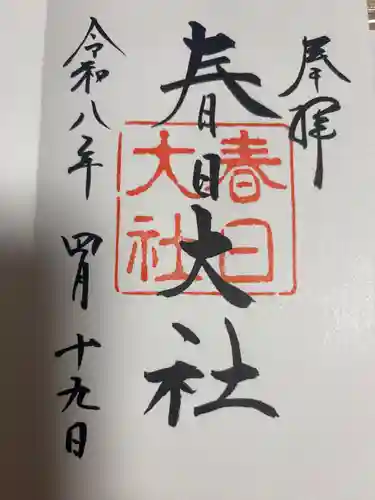 奉拝
春日大社
春日
大社
令和八年 四月十九日